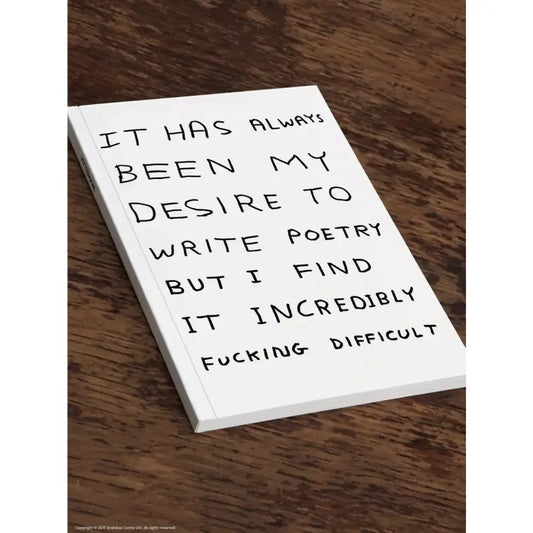 IT HAS ALWAYS
BEEN MY
DESIRE TO
WRITE POETRY
BUT I FIND
IT INCREDIBLY
FUCKING DIFFICULT
Copyright © 2017 Brainbox Candy Ltd. All rights reserved.